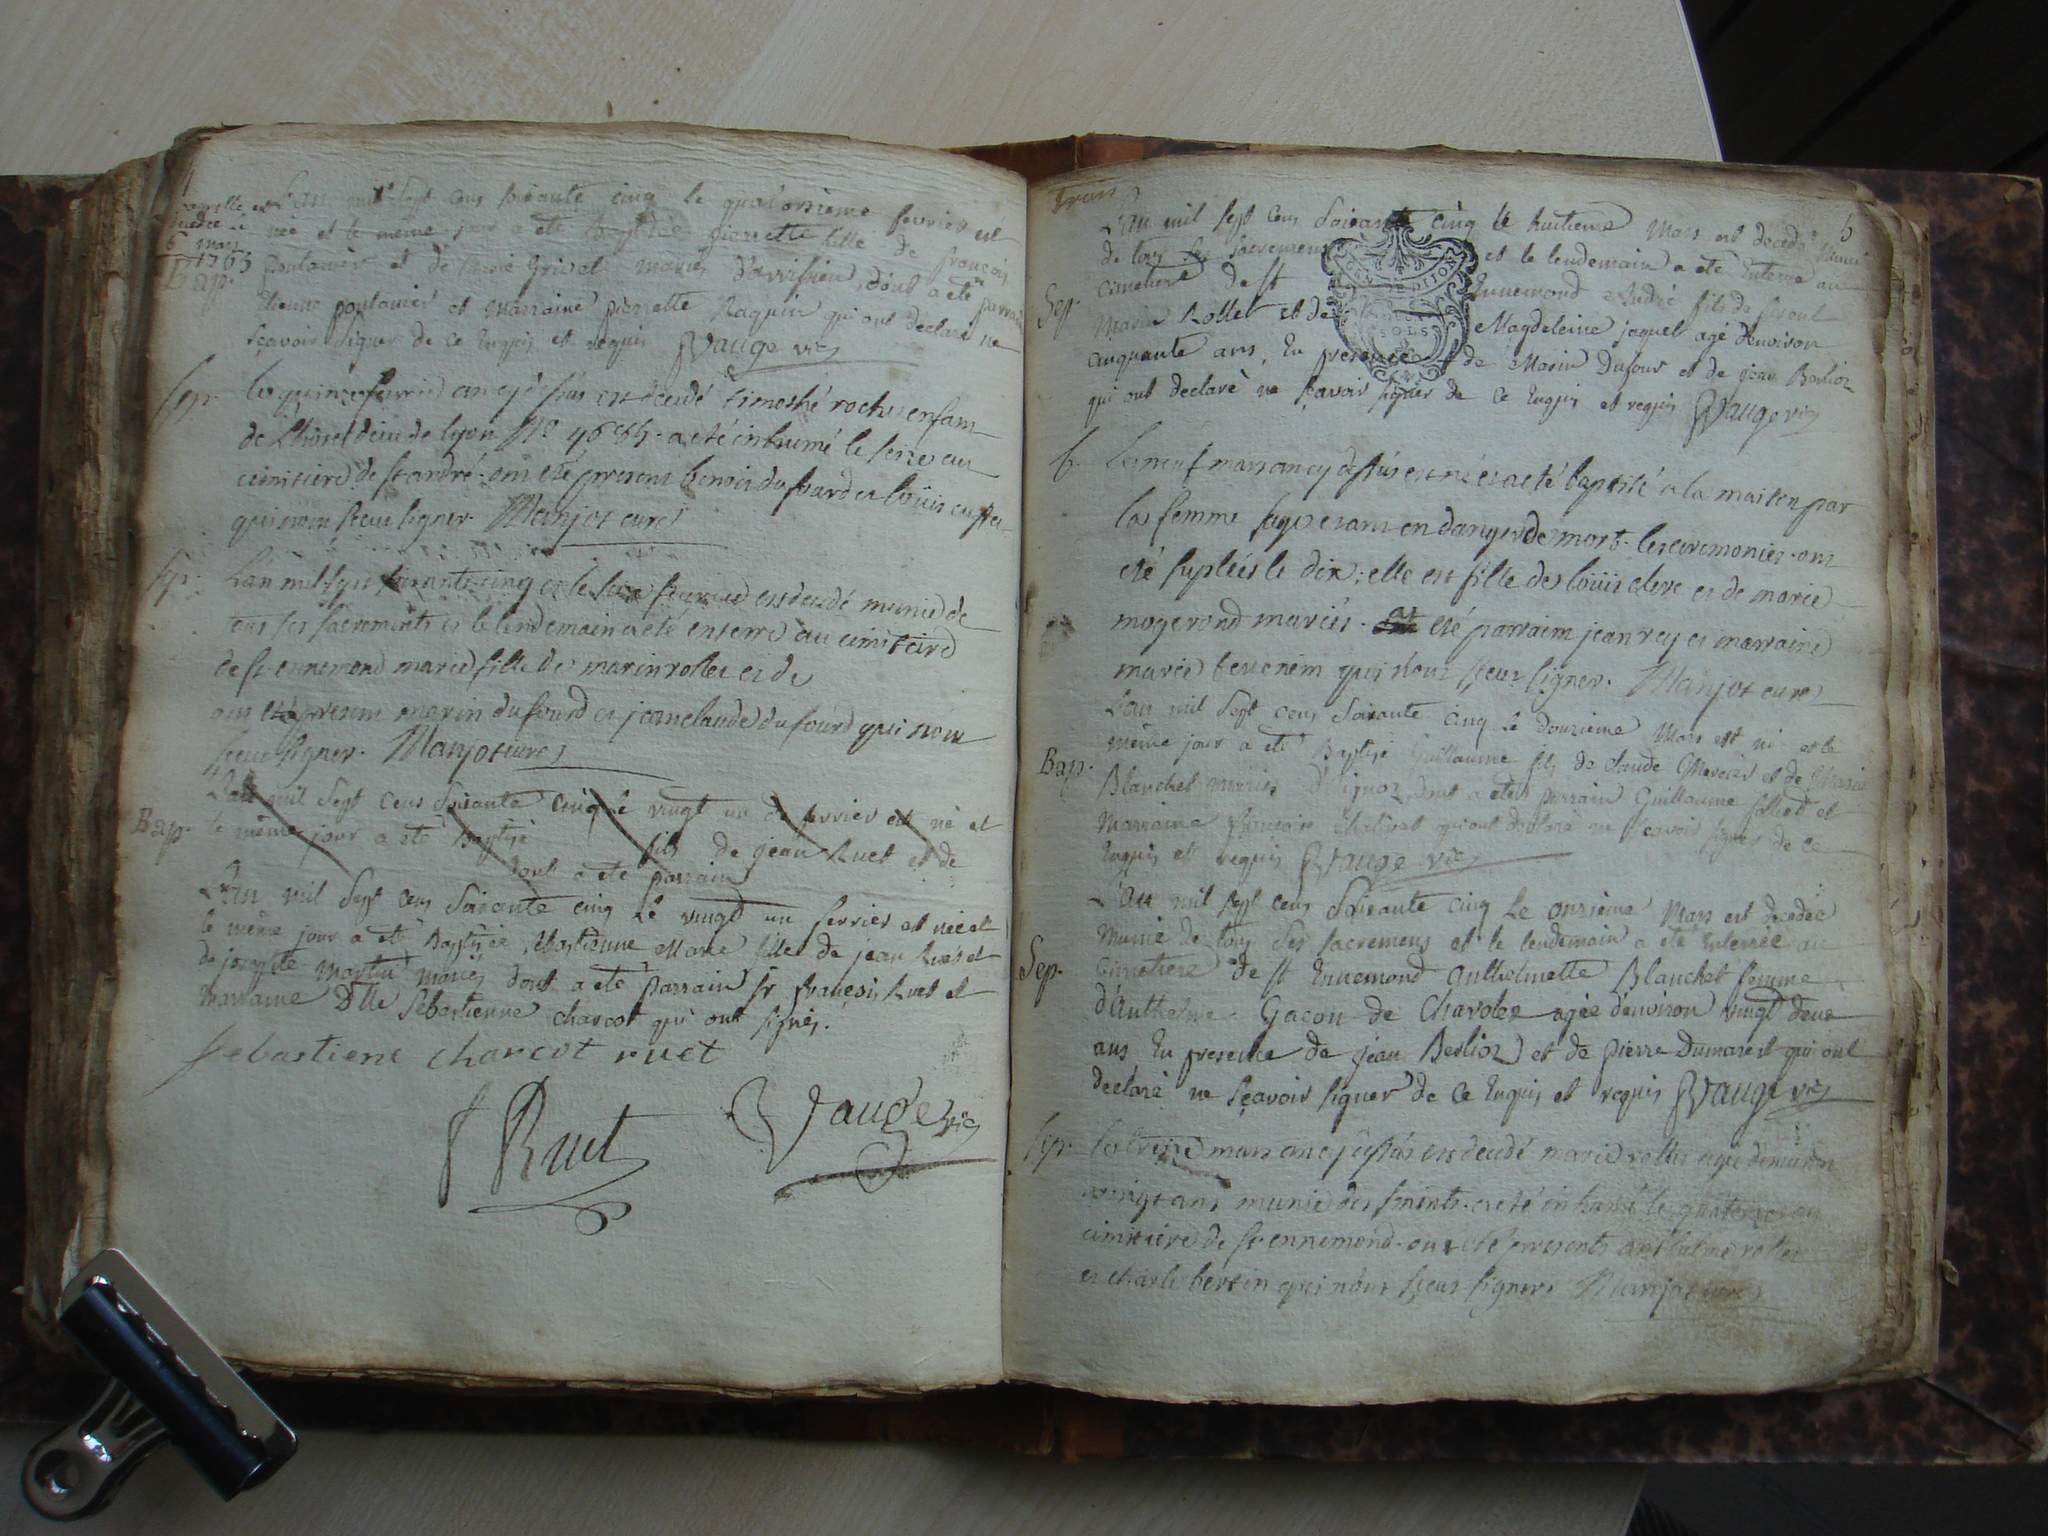 L'an mil sept cens soixante cinq le quatorsieme fevrier est
née et le même jour a eté baptisée pierrette fille de françois
6 mars
1765
Bap.
poulanier et de marie Grivet mariés dont a eté parrain
Etienne poulanier et Marraine pierrette Raquin qui ont déclaré ne
sçavoir signer de ce Enquis et requis Vauge vic
Sep. le quinze fevrier an cy dessus est decedé timothé rochus enfant
de l'hôtel dieu de lyon No a eté inhumé le seize au
cimitiere de st andré. ont eté present benoit dufourd et loüis
qui nont sceu signer. Manjot curé
Sep. L'an mil sept soixante cinq et le fevrier est decedé munie de
tous ses sacrements et le lendemain a eté enterré au cimitiere
de st ennemond marie fille de marin rollet et de
ont eté present marin dufourd et jean claude dufourd qui nont
sceu signer. Manjot curé
L'an mil sept cens soixante cinq le vingt un de fevrier est né et
Bap. le même jour a eté Baptisé fils de jean Ruet et de
dont a eté parrain
L'an mil sept cens soixante cinq le vingt un fevrier est née et
le même jour a eté Baptisée sebastienne Marie fille de jean Ruet et
de josephte Martin mariés dont a eté parrain sr françois Ruet et
marraine Dlle Sebastienne charcot qui ont signés.
sebastiene charcot ruet
f Ruet Vauge vic
trois
5
L'an mil sept cens soixante cinq le huitieme Mars est decedé Muni
de tous ses sacremens et le lendemain a eté Enterré au
Sep. cimetiere de st Ennemond André fils de feu
Marin Rollet et de Magdeleine jaquet agé denviron
cinquante ans, En presence de Marin Dufour et de jean Berlioz
qui ont declaré ne sçavoir signer de ce Enquis et requis Vauge vic
b. le neuf mars an cy dessus est né et a eté baptisé a la maison par
la femme sage etant en danger de mort. les ceremonies ont
eté supleés le dix; elle est fille de loüis clerc et de marie
mogerond mariés. eté parraim jean rey et marraine
marie qui nont sceu signer. Manjot curé
L'an mil sept cens soixante cinq le douzieme Mars est né et le
même jour a eté Baptisé Guillaume fils de claude Mercier et de Marie
Bap. Blanchet mariés dont a eté parrain Guillaume et
Marraine qui ont declaré ne sçavoir signer de ce
Enquis et requis Vauge vic
L'an mil sept cens soixante cinq le onzieme Mars est decedée
Munie de tous ses sacremens et le lendemain a eté Enterrée au
Sep. Cimetiere de st Ennemond Guilhelmette Blanchet femme
d'Anthelme Gacon de Charolez agée d'environ vingt deux
ans En presence de jean Berlioz et de pierre Dumarest qui ont
declaré ne sçavoir signer de ce Enquis et requis Vauge vic
Sep. le treize mars an cy dessus est decedé marie rollet agée denviron
vingt ans munie des sments. a eté inhumé le quatorze au
cimitiere de st ennemond. ont eté presents anthelme rollet
et charle bertin qui nont sceu signer. Manjot curé